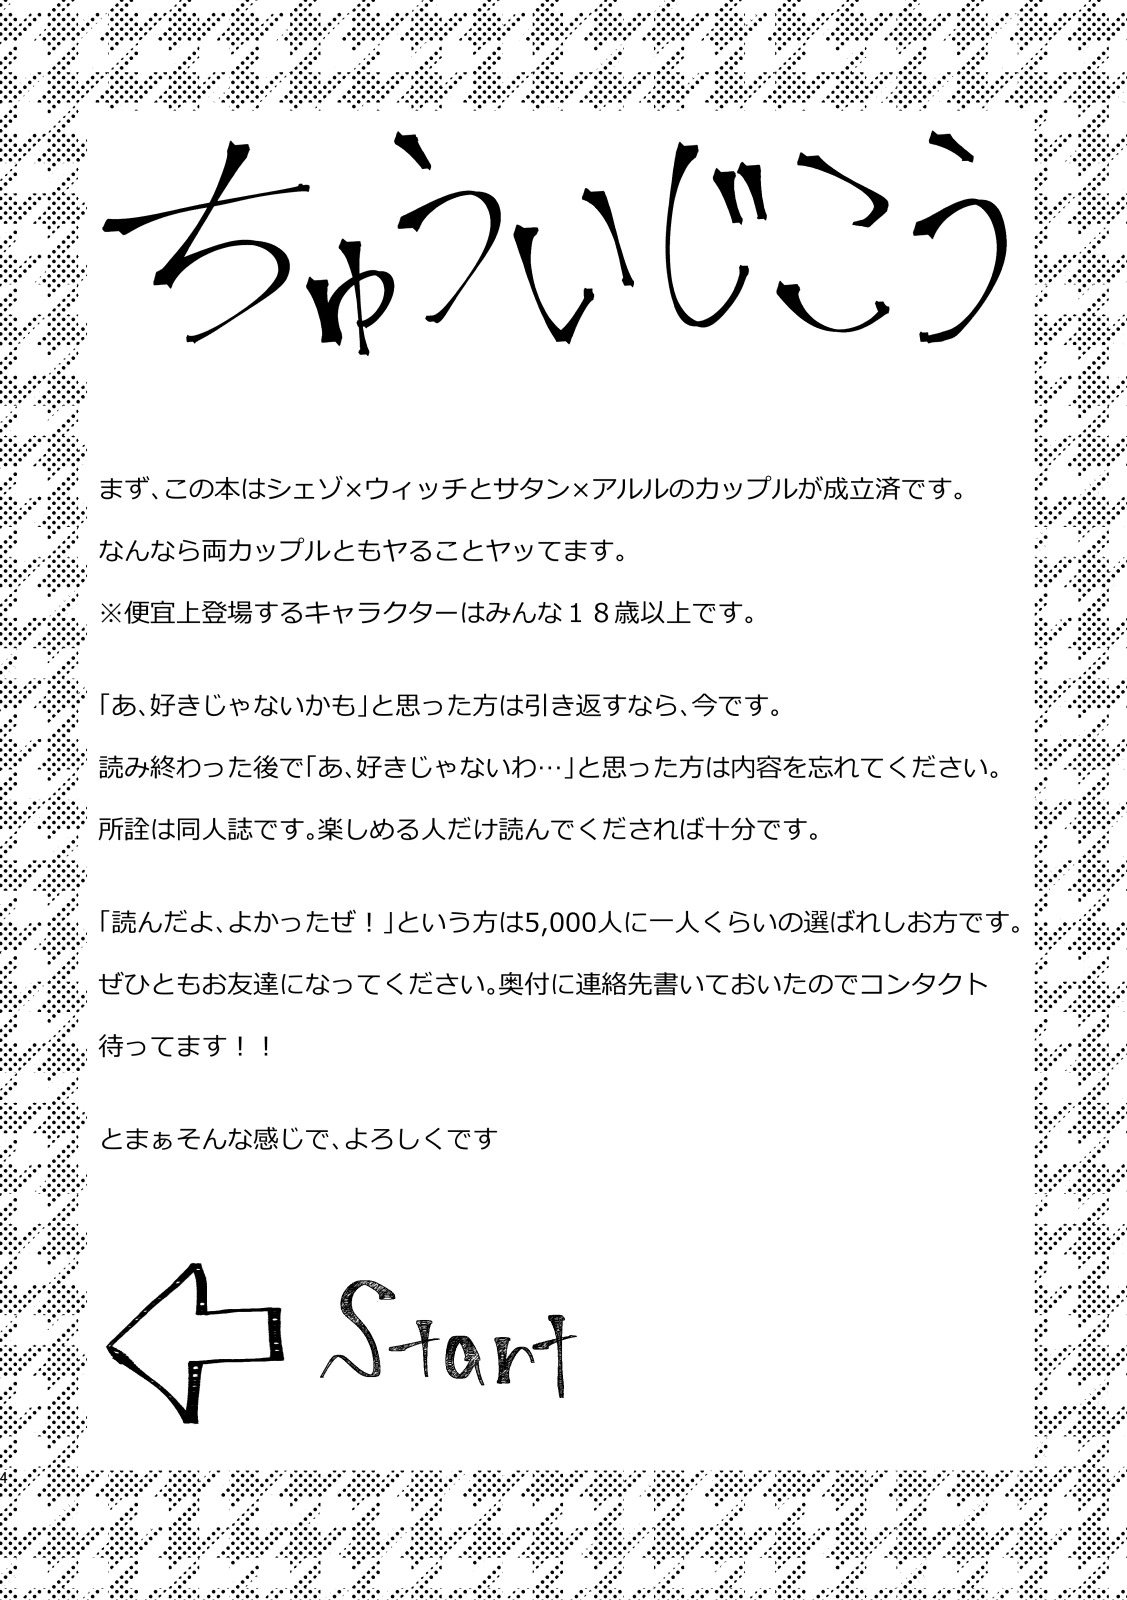 ちゅういじこう
まず、この本はシェゾ×ウィッチとサタン×アルルのカップルが成立済です。
なんなら両カップルともヤることヤッてます。
※便宜上登場するキャラクターはみんな１８歳以上です。
「あ、好きじゃないかも」と思った方は引き返すなら、今です。
読み終わった後で「あ、好きじゃないわ…」と思った方は内容を忘れてください。
所詮は同人誌です。楽しめる人だけ読んでくだされば十分です。
「読んだよ、よかったぜ！」という方は5,000人に一人くらいの選ばれしお方です。
ぜひともお友達になってください。奥付に連絡先書いておいたのでコンタクト
待ってます！！
とまぁそんな感じで、よろしくです
Start
4